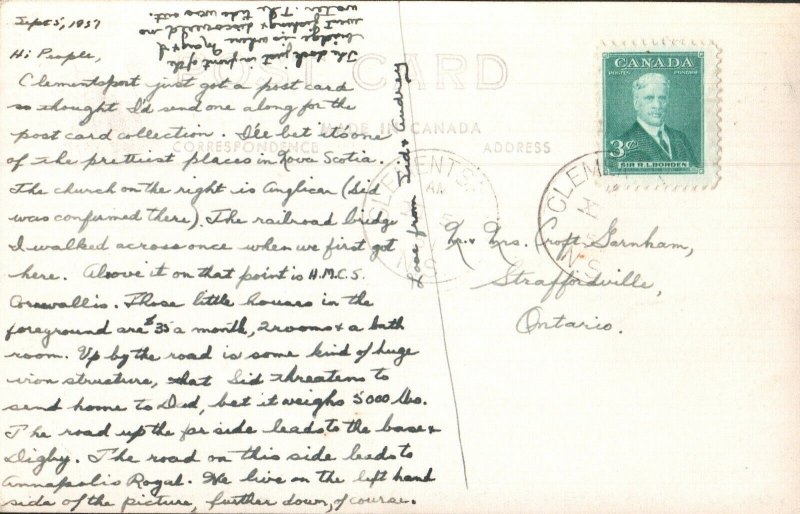 Sept 5, 1957
Hi People,
Clementsport just got a post card
so thought I'd send one along for the
post card collection. I'll bet it's one
of the prettiest places in Nova Scotia.
The church on the right is Anglican (Sid
was confirmed there). The railroad bridge
I walked across once when we first got
here. Above it on that point is H.M.C.S.
Cornwallis. Those little houses in the
foreground are $35 a month, 2 rooms & a bath
room. Up by the road is some kind of huge
iron structure, that Sid threatens to
send home to Dad, bet it weighs 5000 lbs.
The road up the far side leads to the base &
Digby. The road on this side leads to
Annapolis Royal. We live on the left hand
side of the picture, further down, of course.
The dock just in front of the
bridge is where Mary & I
went fishing & discovered no
water. The tide was out.
Love from Sid & Audrey
POST CARD
MADE IN CANADA
CORRESPONDENCE
ADDRESS
CLEMENTS
AM
N.S.
CLEM
N.S.
CANADA
POSTES POSTAGE
3¢
SIR R.L. BORDEN
Mr. & Mrs. Croft Garnham,
Straffordville,
Ontario.